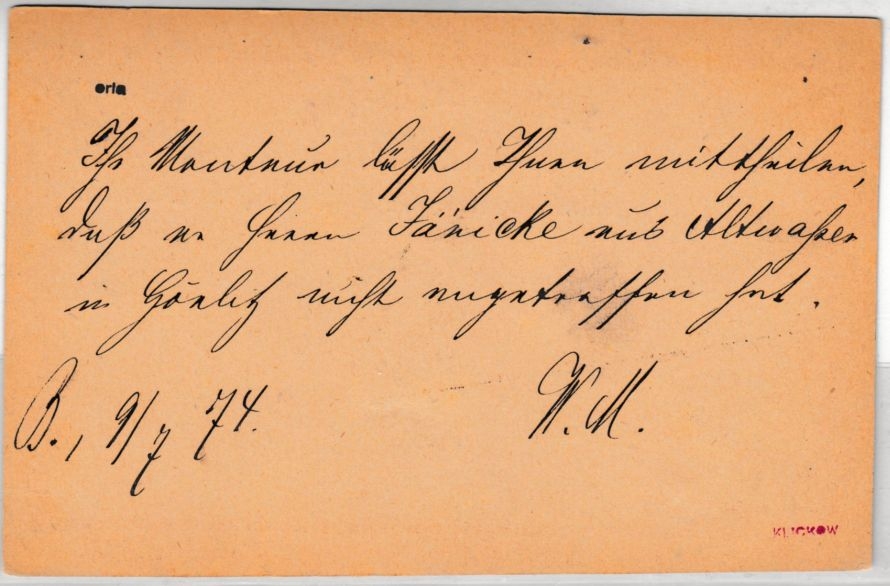 orla
Ihr Monteur läßt Ihnen mittheilen,
daß er Herrn Jänicke aus Altwaßer
in Görlitz nicht angetroffen hat.
B., 9/7 74.
W. M.
KLICKOW